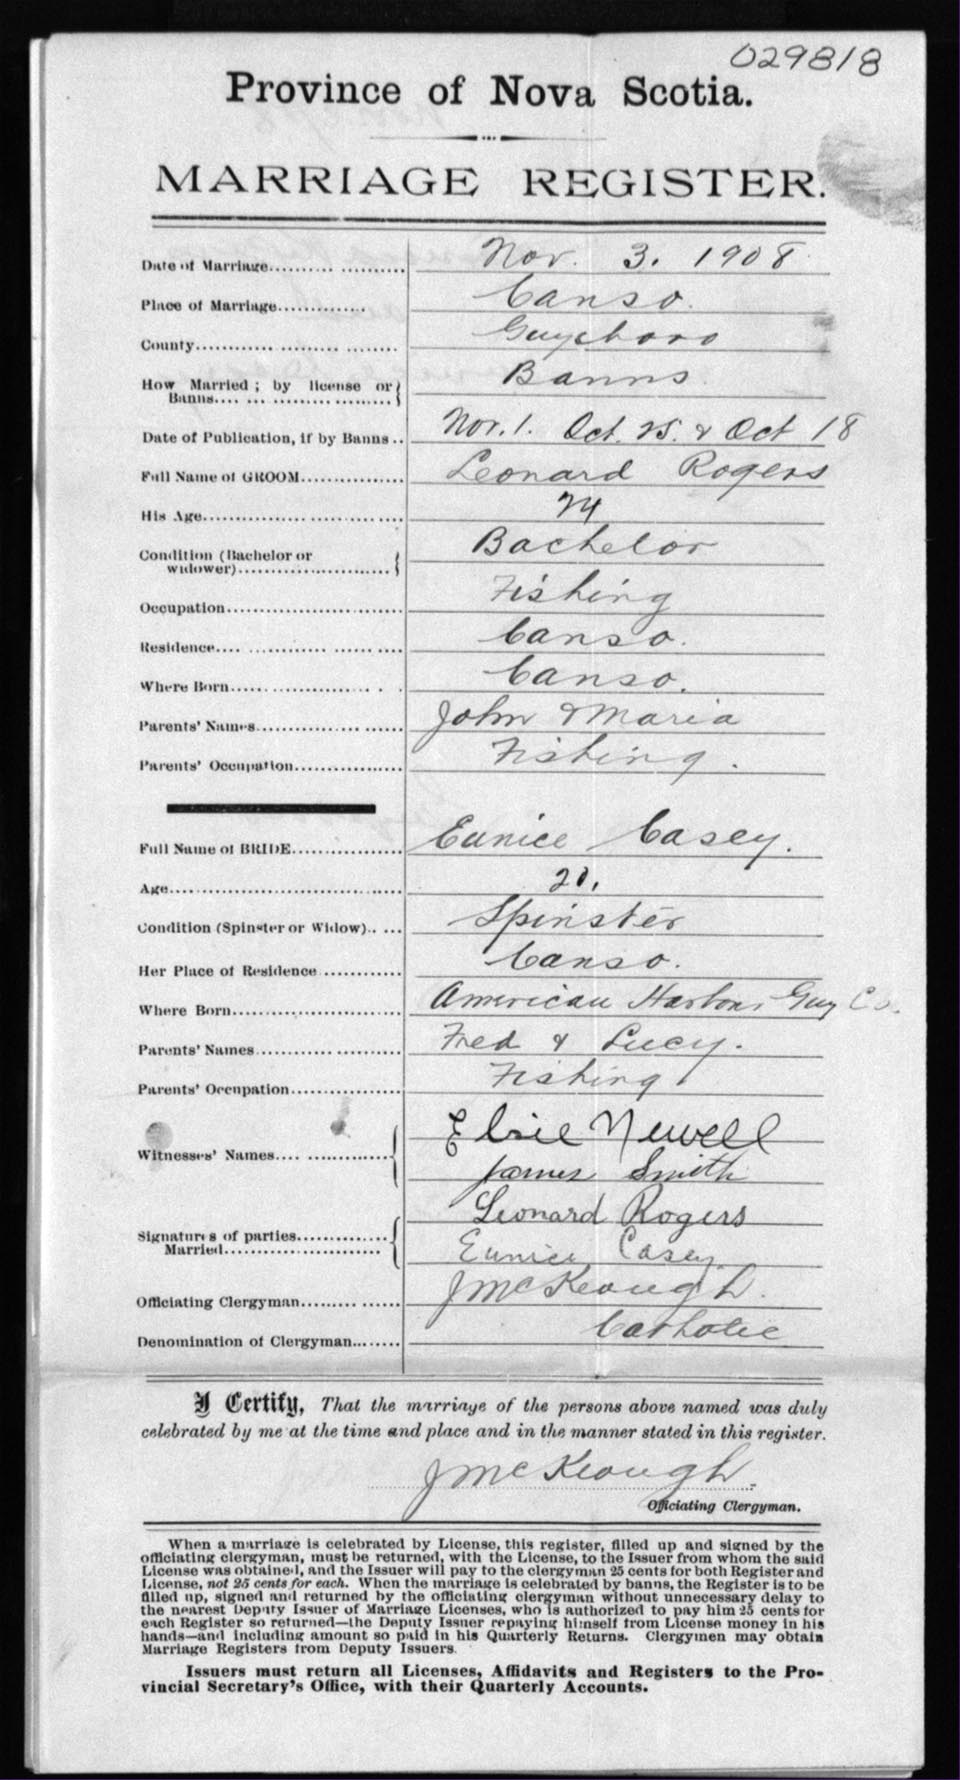 029818
Province of Nova Scotia.
MARRIAGE REGISTER.
Date of Marriage.... Nov. 3. 1908
Place of Marriage.... Canso.
County.... Guysboro
How Married; by license or Banns.... Banns.
Date of Publication, if by Banns.. Nov. 1. Oct. 25. & Oct 18
Full Name of GROOM.... Leonard Rogers
His Age.... 24
Condition (Bachelor or widower).... Bachelor
Occupation.... Fishing
Residence.... Canso.
Where Born.... Canso.
Parents' Names.... John & Maria
Parents' Occupation.... Fishing.
Full Name of BRIDE.... Eunice Casey.
Age.... 20.
Condition (Spinster or Widow).. ... Spinster
Her Place of Residence.... Canso.
Where Born.... American Harbour Guy Co.
Parents' Names.... Fred & Lucy.
Parents' Occupation.... Fishing
Witnesses' Names.... Elsie Newell
James Smith
Signatures of parties Married.... Leonard Rogers
Eunice Casey.
Officiating Clergyman.... J McKeough.
Denomination of Clergyman.... Catholic
I Certify, That the marriage of the persons above named was duly
celebrated by me at the time and place and in the manner stated in this register.
J McKeough.
Officiating Clergyman.
When a marriage is celebrated by License, this register, filled up and signed by the
officiating clergyman, must be returned, with the License, to the Issuer from whom the said
License was obtained, and the Issuer will pay to the clergyman 25 cents for both Register and
License, not 25 cents for each. When the marriage is celebrated by banns, the Register is to be
filled up, signed and returned by the officiating clergyman without unnecessary delay to
the nearest Deputy Issuer of Marriage Licenses, who is authorized to pay him 25 cents for
each Register so returned—the Deputy Issuer repaying himself from License money in his
hands—and including amount so paid in his Quarterly Returns. Clergymen may obtain
Marriage Registers from Deputy Issuers.
Issuers must return all Licenses, Affidavits and Registers to the Pro-
vincial Secretary's Office, with their Quarterly Accounts.